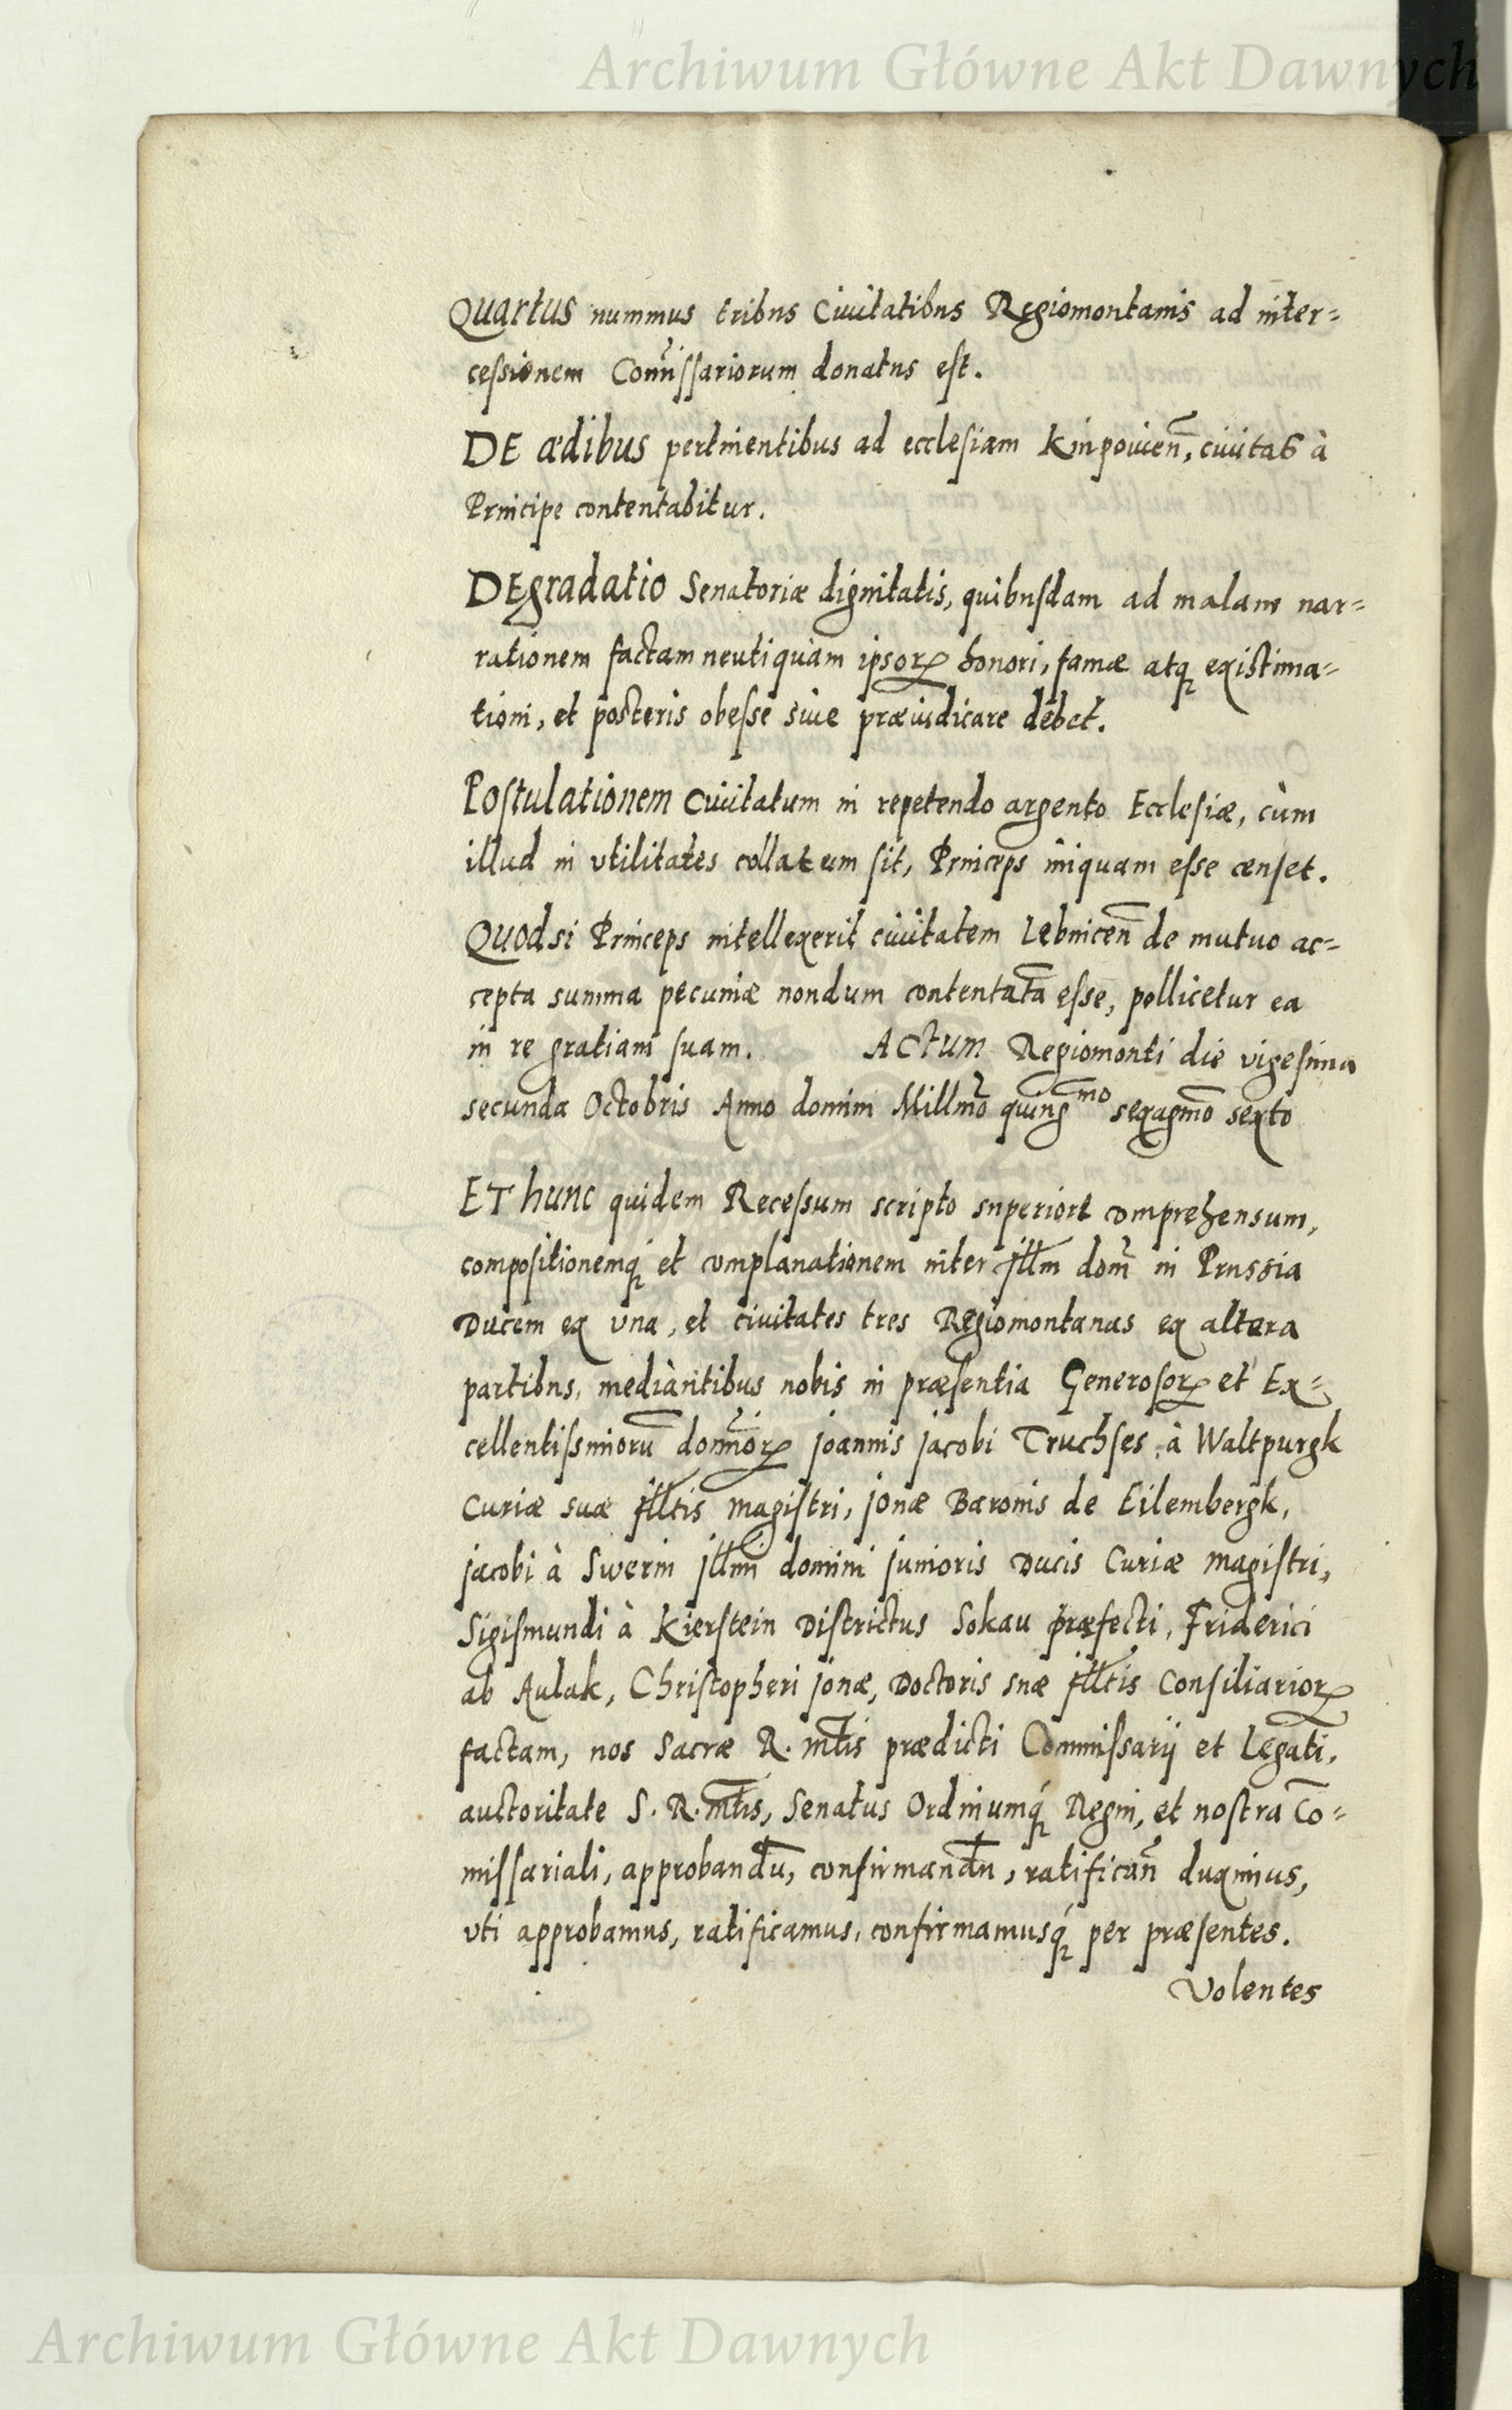 Archiwum Główne Akt Dawnych
Quartus nummus tribus Ciuitatibus Regiomontanis ad inter=
cessionem Commissariorum donatus est.
DE ædibus pertinentibus ad ecclesiam Kinpouicen̄, ciuitas à
Principe contentabitur.
DEgradatio Senatoriæ dignitatis, quibusdam ad malam nar=
rationem factam neutiquàm ipsorꝝ honori, famæ atqꝫ existima=
tioni, et posteris obesse siue præiudicare debet.
Postulationem Ciuitatum in repetendo argento Ecclesiæ, cùm
illud in vtilitates collatum sit, Princeps iniquam esse censet.
Quodsi Princeps intellexerit ciuitatem Lebnicen̄ de mutuo ac=
cepta summa pecuniæ nondum contentatā esse, pollicetur ea
in re gratiam suam. Actum Regiomonti die vigesima
secunda Octobris Anno domini Millmō quing^mo sexagmō sexto
ET hunc quidem Recessum scripto superiore comprehensum,
compositionemqꝫ et complanationem inter Jllm̄ dom̄ in Prussia
Ducem ex vna, et ciuitates tres Regiomontanas ex altera
partibus, mediàntibus nobis in præsentia Generosorꝝ et Ex=
cellentissimorū domin̄orꝝ Joannis Jacobi Truchses à Waltpurgk
Curiæ suæ Jlltis magistri, Jonæ Baronis de Eilembergk,
Jacobi à Swerin Jllmi domini junioris Ducis Curiæ magistri,
Sigismundi à Kierstein Districtus Sokau præfecti, Friderici
ab Aulak, Christopheri Jonæ, Doctoris suæ Jlltis Consiliariorꝝ
factam, nos Sacræ R. Mtis prædicti Commissarij et Legati,
auctoritate S. R. Mtis, Senatus Ordinumqꝫ Regni, et nostra Cō=
missariali, approbandū, confirmandū, ratifican̄ duximus,
vti approbamus, ratificamus, confirmamusqꝫ per præsentes.
Volentes
Archiwum Główne Akt Dawnych